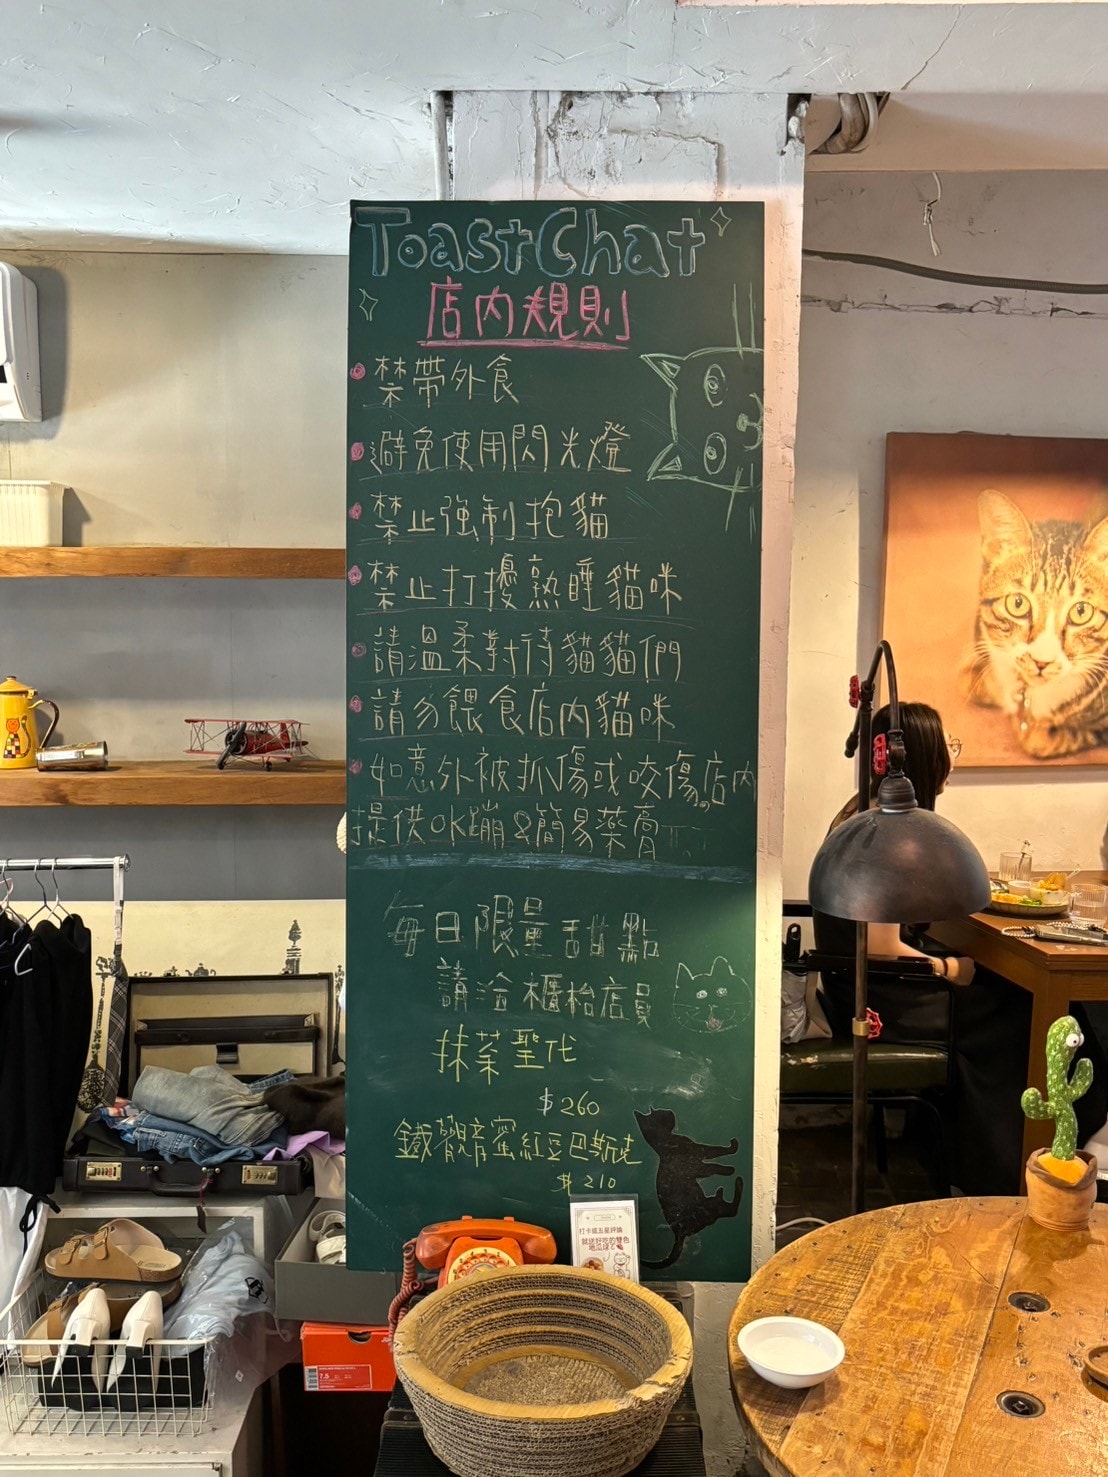 ToastChat
店內規則
禁帶外食
避免使用閃光燈
禁止強制抱貓
禁止打擾熟睡貓咪
請溫柔對待貓貓們
請勿餵食店內貓咪
如意外被抓傷或咬傷店內
提供OK蹦&簡易藥膏
每日限量甜點
請洽櫃枱店員
抹茶聖代
$260
鐵觀音蜜紅豆巴斯克
$210
打卡或五星評論
就送好吃的雙色
地瓜球
7.5